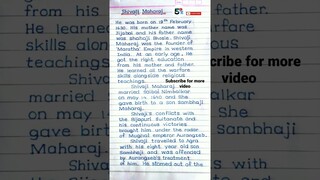 Shivaji Maharaj
5
He was born on 19th February
1630. His mother name was
Jijabai and his father name
was Shahaji Bhosle. Shivaji
Maharaj was the founder of
Maratha Empire in western
India. At an early age, He
got the right education
from his mother and father.
He learned all the warfare
skills alongside religious
teachings.
Shivaji Maharaj
married Saibai Nimbalkar
on may 14 1640 and She
gave birth to a son Sambhaji
Maharaj.
Shivaji's conflicts with
the Bijapuri Sultanate and
his continuous victories
brought him under the radar
of Mughal emperor Aurangzeb.
Shivaji travelled to Agra
with his eight year old son
Sambhaji and was offended
by Aurangzeb's treatment
of him. He stormed out of the
Subscribe for more
video